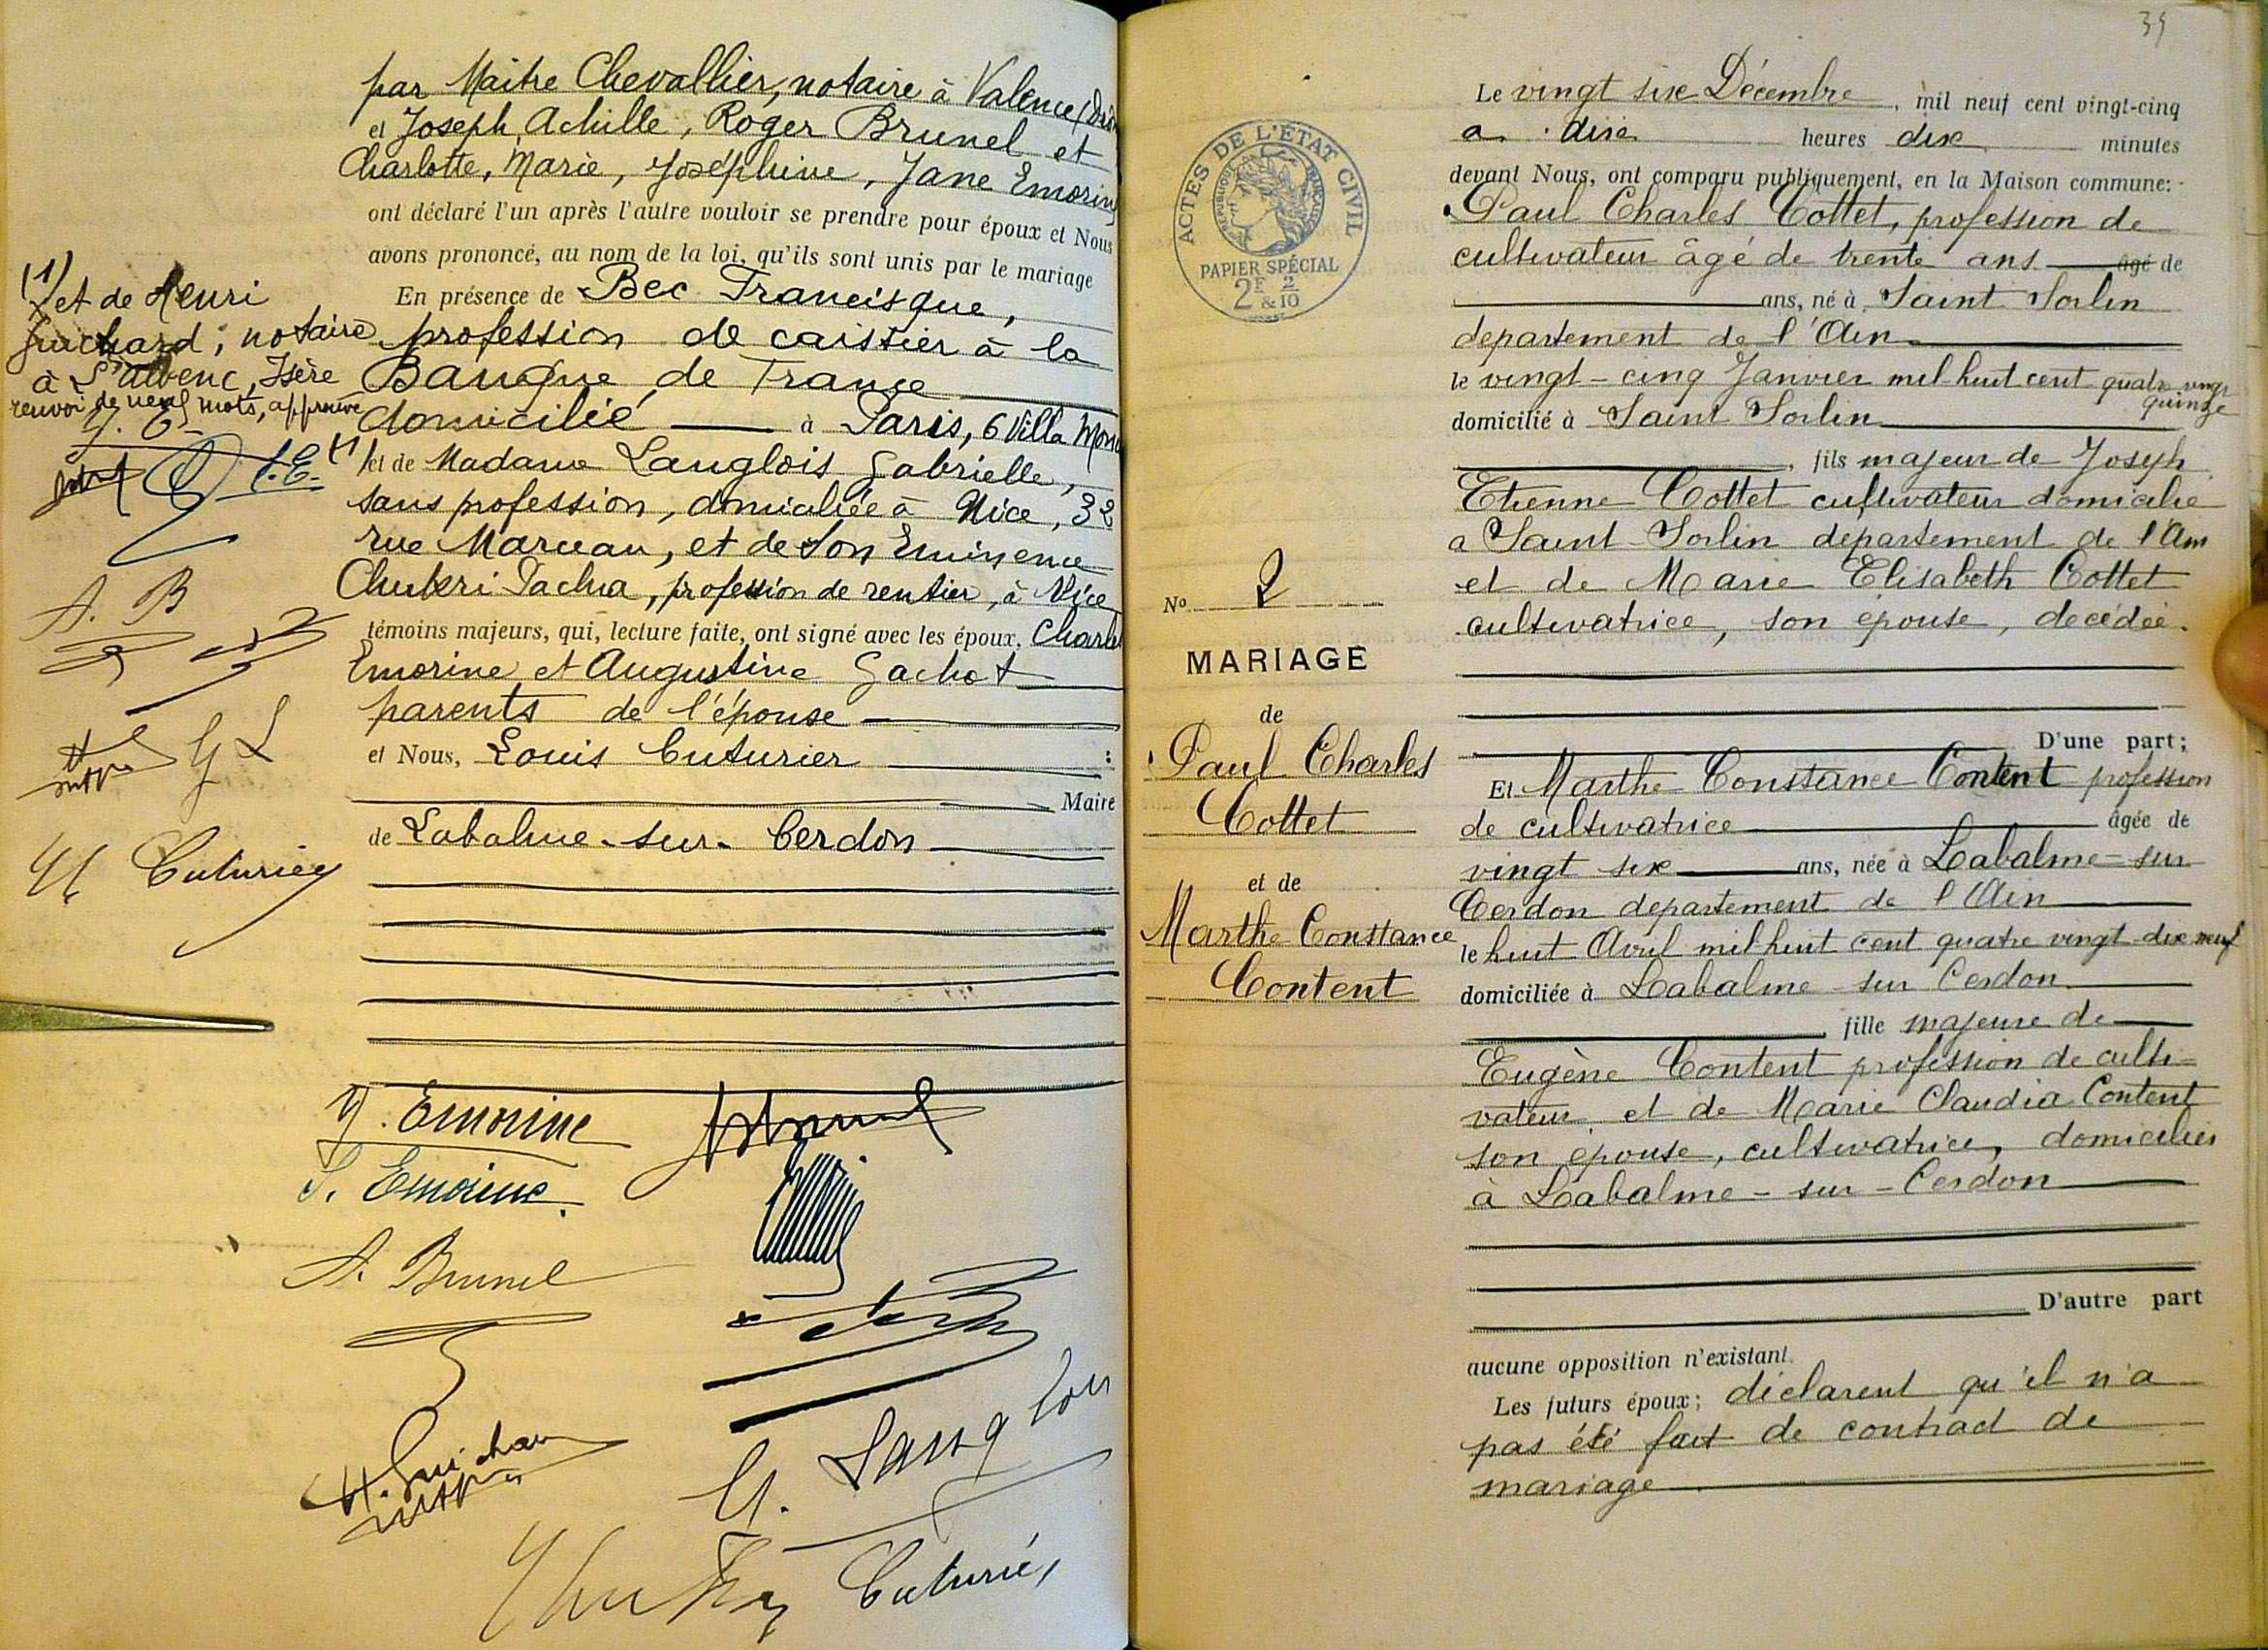 par Maitre Chevallier, notaire à Valence
et Joseph, Achille, Roger Brunel et
Charlotte, Marie, Joséphine, Jane Emorine
ont déclaré l'un après l'autre vouloir se prendre pour époux et Nous
avons prononcé, au nom de la loi, qu'ils sont unis par le mariage
En présence de Bec Francisque,
profession de caissier à la
Banque de France
domicilié à Paris, 6 Villa
(1) et de Madame Langlois Gabrielle,
sans profession, domiciliée à Nice, 32
rue Marceau, et de Son Eminence
Chukri Pacha, profession de rentier, à Nice
témoins majeurs, qui, lecture faite, ont signé avec les époux,
Emorine et Augustine Gachot
parents de l'épouse
et Nous, Louis Cuturier :
Maire
de Labalme-sur-Cerdon
(1)
et de Henri
Guichard, notaire
à St Albenc, Isère
renvoi de neuf mots, approuvé
J. E.
J. E.
A. B
G L
Cuturier
J. Emorine
J. Emorine
A. Brunel
H. Guichard
G. Langlois
Cuturier
39
ACTES DE L'ÉTAT CIVIL
RÉPUBLIQUE FRANÇAISE
PAPIER SPÉCIAL
2F 2
& 10
No 2
MARIAGE
de
Paul Charles
Cottet
et de
Marthe Constance
Content
Le vingt six Décembre, mil neuf cent vingt-cinq
a dix heures dix minutes
devant Nous, ont comparu publiquement, en la Maison commune:
Paul Charles Cottet, profession de
cultivateur âgé de trente ans âgé de
ans, né à Saint Sorlin
departement de l'Ain
le vingt-cinq Janvier mil huit cent quatre vingt
quinze
domicilié à Saint Sorlin
, fils majeur de Joseph
Etienne Cottet cultivateur domicilié
a Saint-Sorlin departement de l'Ain
et de Marie Elisabeth Cottet
cultivatrice, son épouse, decédée.
D'une part;
Et Marthe Constance Content profession
de cultivatrice âgée de
vingt six ans, née à Labalme-sur
Cerdon departement de l'Ain
le huit Avril mil huit cent quatre vingt dix neuf
domiciliée à Labalme sur Cerdon
, fille majeure de
Eugène Content profession de culti-
vateur et de Marie Claudia Content
son épouse, cultivatrice, domiciliés
à Labalme-sur-Cerdon
D'autre part
aucune opposition n'existant.
Les futurs époux; déclarent qu'il n'a
pas été fait de contract de
mariage